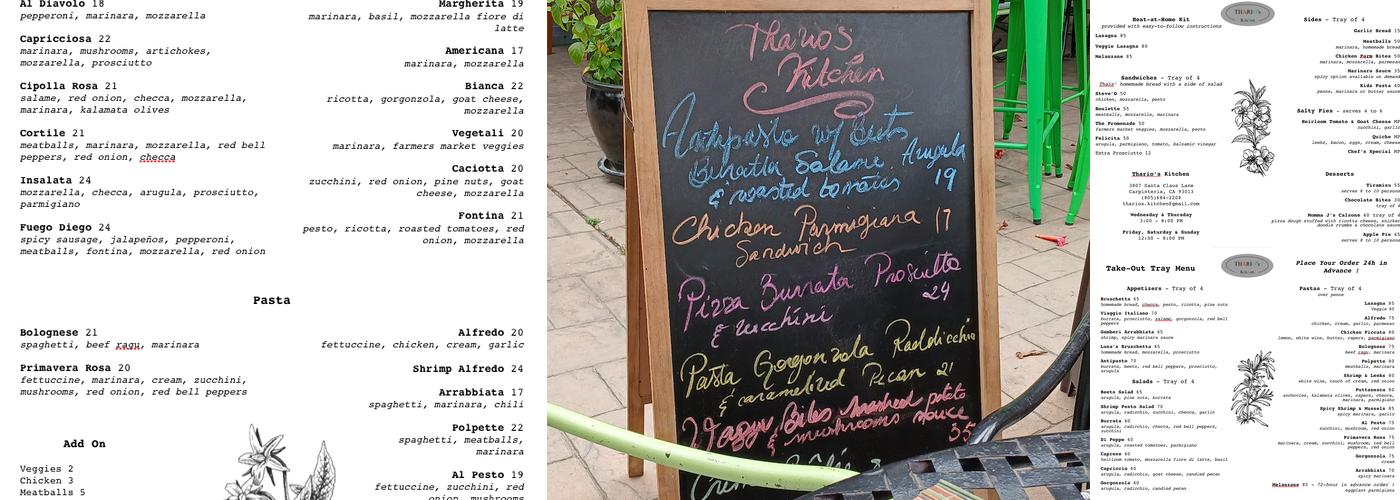 Al Diavolo 18
pepperoni, marinara, mozzarella
Capricciosa 22
marinara, mushrooms, artichokes,
mozzarella, prosciutto
Cipolla Rosa 21
salame, red onion, checca, mozzarella,
marinara, kalamata olives
Cortile 21
meatballs, marinara, mozzarella, red bell
peppers, red onion, checca
Insalata 24
mozzarella, checca, arugula, prosciutto,
parmigiano
Fuego Diego 24
spicy sausage, jalapeños, pepperoni,
meatballs, fontina, mozzarella, red onion
Margherita 19
marinara, basil, mozzarella fiore di
latte
Americana 17
marinara, mozzarella
Bianca 22
ricotta, gorgonzola, goat cheese,
mozzarella
Vegetali 20
marinara, farmers market veggies
Caciotta 20
zucchini, red onion, pine nuts, goat
cheese, mozzarella
Fontina 21
pesto, ricotta, roasted tomatoes, red
onion, mozzarella
Pasta
Bolognese 21
spaghetti, beef ragu, marinara
Primavera Rosa 20
fettuccine, marinara, cream, zucchini,
mushrooms, red onion, red bell peppers
Alfredo 20
fettuccine, chicken, cream, garlic
Shrimp Alfredo 24
Arrabbiata 17
spaghetti, marinara, chili
Polpette 22
spaghetti, meatballs,
marinara
Al Pesto 19
fettuccine, zucchini, red
onion, mushrooms
Add On
Veggies 2
Chicken 3
Meatballs 5
Thario's
Kitchen
Antipasto w/ Beets
Burratta Salame Arugula
& roasted tomatoes 19
Chicken Parmigiana 17
Sandwich
Pizza Burrata Prosciutto
& zucchini 24
Pasta Gorgonzola Raddicchio
& caramelized Pecan 21
Wagyu Bites mashed potato
& mushrooms sauce
35
Heat-at-Home Kit
provided with easy-to-follow instructions
Lasagna 85
Veggie Lasagna 80
Melanzane 85
Sandwiches - Tray of 4
Thais' homemade bread with a side of salad
Steve'O 50
chicken, mozzarella, pesto
Roulette 55
meatballs, mozzarella, marinara
The Promenade 50
farmers market veggies, mozzarella, pesto
Felicita 50
arugula, parmigiano, tomato, balsamic vinegar
Extra Prosciutto 12
Thario's Kitchen
3807 Santa Claus Lane
Carpinteria, CA 93013
(805)684-2209
tharios.kitchen@gmail.com
Wednesday & Thursday
3:00 - 8:00 PM
Friday, Saturday & Sunday
12:00 - 8:00 PM
THARIO'S
Kitchen
Sides - Tray of 4
Garlic Bread 15
Meatballs 50
marinara, homemade bread
Chicken Parm Bites 50
marinara, mozzarella, parmesan
Marinara Sauce 35
spicy option available on demand
Kids Pasta 40
penne, marinara or butter sauce
Salty Pies - serves 4 to 6
Heirloom Tomato & Goat Cheese MP
zucchini, garlic
Quiche MP
leeks, bacon, eggs, cream, cheese
Chef's Special MP
Desserts
Tiramisu 55
serves 8 to 10 persons
Chocolate Bites 30
tray of 4
Momma J's Calzone 40 tray of
pizza dough stuffed with ricotta cheese, snicker
doodle crumbs & chocolate sauce
Apple Pie 45
serves 8 to 10 persons
Take-Out Tray Menu
THARIO'S
Kitchen
Place Your Order 24h in
Advance !
Appetizers - Tray of 4
Bruschetta 65
homemade bread, checca, pesto, ricotta, pine nuts
Viaggio Italiano 70
burrata, prosciutto, salame, gorgonzola, red bell
peppers
Gamberi Arrabbiata 65
shrimp, spicy marinara sauce
Luna's Bruschetta 65
homemade bread, mozzarella, prosciutto
Antipasto 70
burrata, beets, red bell peppers, prosciutto,
arugula
Salads - Tray of 4
Beets Salad 65
arugula, pine nuts, burrata
Shrimp Pesto Salad 70
arugula, radicchio, zucchini, checca, garlic
Burrata 60
arugula, radicchio, checca, red bell peppers,
prosciutto
Di Peppe 60
arugula, roasted tomatoes, parmigiano
Caprese 60
heirloom tomato, mozzarella fiore di latte, basil
Capriccio 60
arugula, radicchio, goat cheese, candied pecan
Gorgonzola 60
arugula, radicchio, candied pecan
Pastas - Tray of 4
over penne
Lasagna 85
Veggie 80
Alfredo 75
chicken, cream, garlic, parmesan
Chicken Piccata 80
lemon, white wine, butter, capers, parmigiano
Bolognese 75
beef ragu, marinara
Polpatte 80
meatballs, marinara
Shrimp & Leeks 80
white wine, touch of cream, red onion
Puttanesca 80
anchovies, kalamata olives, capers, checca,
marinara, parmigiano
Spicy Shrimp & Mussels 85
spicy marinara, garlic
Al Pesto 75
zucchini, mushroom, red onion
Primavera Rosa 75
marinara, cream, zucchini, mushroom, red bell
peppers, red onion
Gorgonzola 75
cream
Arrabbiata 70
spicy marinara
Melanzane 85 - 72-hour in advance order !
eggplant parmigiana